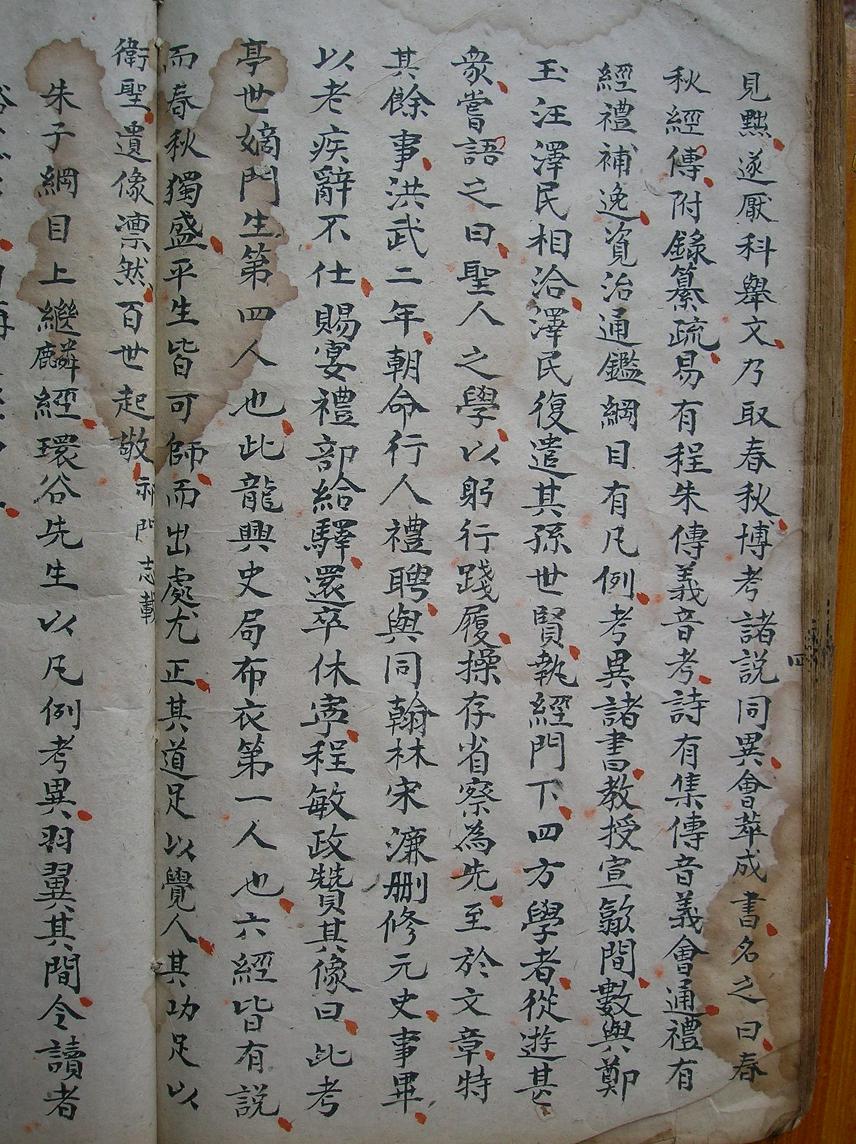 見黜遂厭科舉文乃取春秋博考諸説同異會萃成書名之曰春
秋經傳附錄纂疏易有程朱傳義音考詩有集傳音義會通禮有
經禮補逸資治通鑑綱目有凡例考異諸書教授宣歙間數與鄭
玉汪澤民相洽澤民復遣其孫世賢執經門下四方學者從遊甚
衆嘗語之曰聖人之學以躬行踐履操存省察為先至於文章特
其餘事洪武二年朝命行人禮聘與同翰林宋濂删修元史事畢
以老疾辭不仕賜宴禮部給驛還卒休寧程敏政贊其像曰此考
亭世嫡門生第四人也此龍興史局布衣第一人也六經皆有説
而春秋獨盛平生皆可師而出處尤正其道足以覺人其功足以
衛聖遺像凛然百世起敬祁門志載
朱子綱目上繼麟經環谷先生以凡例考異羽翼其間令讀者